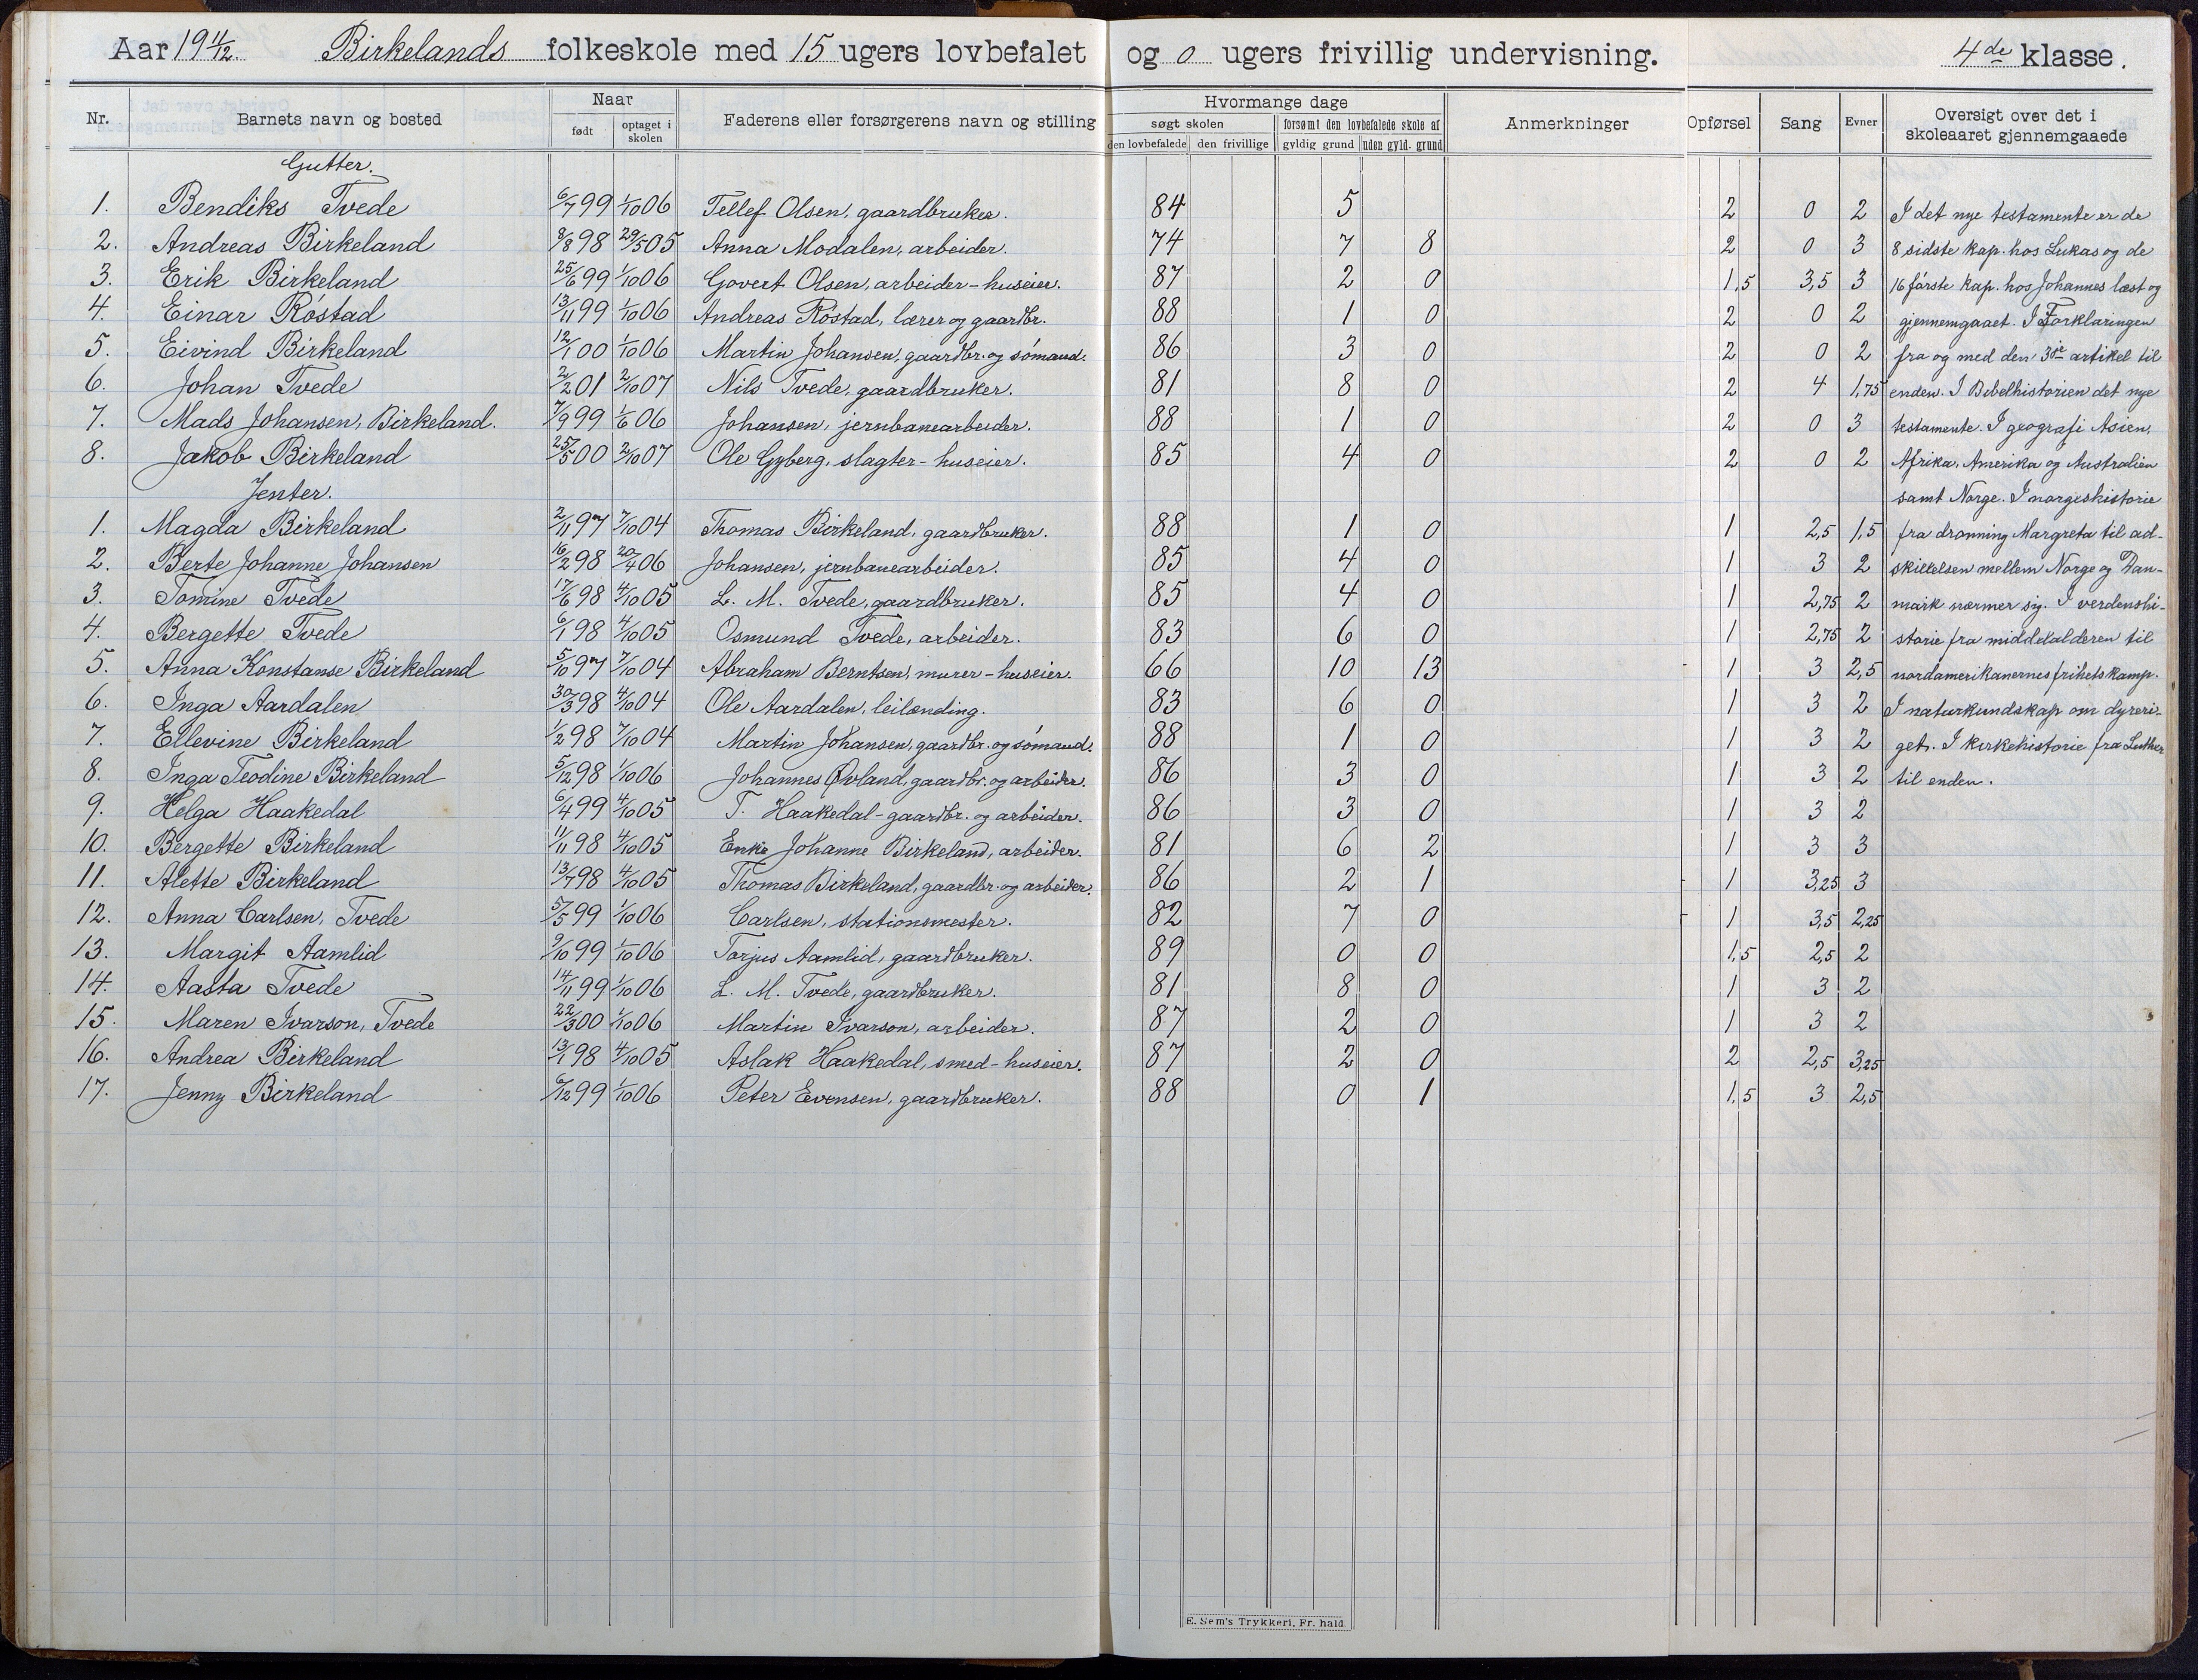 Aar 19 11/12 Birkelands folkeskole med 15 ugers lovbefalet og 0 ugers frivillig undervisning. 4de klasse.
Nr. Barnets navn og bosted Naar født optaget i skolen Faderens eller forsørgerens navn og stilling Hvormange dage søgt skolen den lovbefalede den frivillige forsømt den lovbefalede skole af gyldig grund uden gyld. grund Anmerkninger Opførsel Sang Evner Oversigt over det i skoleaaret gjennemgaaede
Gutter.
1. Bendiks Tvede 6/7 99 1/10 06 Tellef Olsen, gaardbruker. 84 5 2 0 2 I det nye testamente er de
2. Andreas Birkeland 8/8 98 29/5 05 Anna Modalen, arbeider. 74 7 8 2 0 3 8 sidste kap. hos Lukas og de
3. Erik Birkeland 25/6 99 1/10 06 Govert Olsen, arbeider - huseier. 87 2 0 1,5 3,5 3 16 første kap. hos Johannes læst og
4. Einar Røstad 13/11 99 1/10 06 Andreas Røstad, lærer og gaardbr. 88 1 0 2 0 2 gjennemgaaet. I Forklaringen
5. Eivind Birkeland 12/1 00 1/10 06 Martin Johansen, gaardbr. og sømand. 86 3 0 2 0 2 fra og med den 3je artikel til
6. Johan Tvede 2/2 01 2/10 07 Nils Tvede, gaardbruker. 81 8 0 2 4 1,75 enden. I Bibelhistorien det nye
7. Mads Johansen, Birkeland. 7/9 99 1/6 06 Johansen, jernbanearbeider. 88 1 0 2 0 3 testamente. I geografi Asien,
8. Jakob Birkeland 25/5 00 2/10 07 Ole Gyberg, slagter - huseier. 85 4 0 2 0 2 Afrika, Amerika og Australien
Jenter. samt Norge. I norgeshistorie
1. Magda Birkeland 2/11 97 7/10 04 Thomas Birkeland, gaardbruker. 88 1 0 1 2,5 1,5 fra dronning Margreta til ad-
2. Berte Johanne Johansen 16/2 98 20/4 06 Johansen, jernbanearbeider. 85 4 0 1 3 2 skillelsen mellem Norge og Dan-
3. Tomine Tvede 17/6 98 4/10 05 L. M. Tvede, gaardbruker. 85 4 0 1 2,75 2 mark nærmer sig. I verdenshi-
4. Bergette Tvede 6/1 98 4/10 05 Osmund Tvede, arbeider. 83 6 0 1 2,75 2 storie fra middelalderen til
5. Anna Konstanse Birkeland 5/10 97 7/10 04 Abraham Berntsen, murer - huseier. 66 10 13 1 3 2,5 nordamerikanernes frihetskamp.
6. Inga Aardalen 30/3 98 4/10 04 Ole Aardalen, leilænding. 83 6 0 1 3 2 I naturkundskap om dyreri-
7. Ellevine Birkeland 1/2 98 7/10 04 Martin Johansen, gaardbr. og sømand. 88 1 0 1 3 2 get. I kirkehistorie fra Luther
8. Inga Teodine Birkeland 5/12 98 1/10 06 Johannes Øvland, gaardbr. og arbeider. 86 3 0 1 3 2 til enden.
9. Helga Haakedal 6/4 99 4/10 05 T. Haakedal - gaardbr. og arbeider. 86 3 0 1 3 2
10. Bergette Birkeland 11/11 98 4/10 05 Enke Johanne Birkeland, arbeider. 81 6 2 1 3 3
11. Alette Birkeland 13/7 98 4/10 05 Thomas Birkeland, gaardbr. og arbeider. 86 2 1 1 3,25 3
12. Anna Carlsen, Tvede 5/5 99 1/10 06 Carlsen, stationsmester. 82 7 0 1 3,5 2,25
13. Margit Aamlid 9/10 99 1/10 06 Torjus Aamlid, gaardbruker. 89 0 0 1,5 2,5 2
14. Aasta Tvede 14/11 99 1/10 06 L. M. Tvede, gaardbruker. 81 8 0 1 3 2
15. Maren Ivarson, Tvede 22/3 00 1/10 06 Martin Ivarson, arbeider. 87 2 0 1 3 2
16. Andrea Birkeland 13/1 98 4/10 05 Aslak Haakedal, smed - huseier. 87 2 0 2 2,5 3,25
17. Jenny Birkeland 6/12 99 1/10 06 Peter Evensen, gaardbruker. 88 0 1 1,5 3 2,5
E. Sem's Trykkeri, Fr. hald